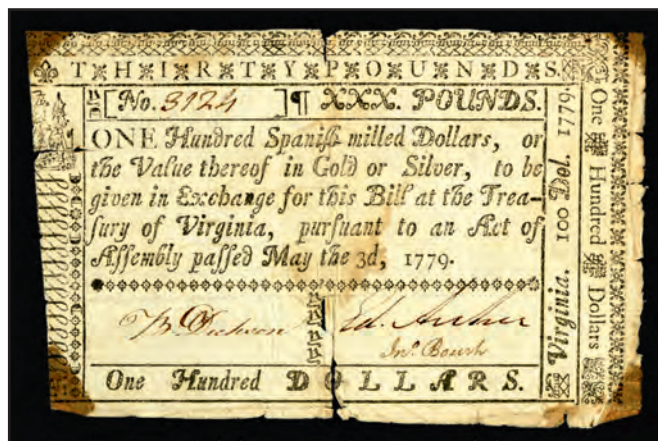 THIRTY POUNDS.
[No. 3124 ]¶ XXX. POUNDS.
ONE Hundred Spaniſh milled Dollars, or
the Value thereof in Gold or Silver, to be
given in Exchange for this Bill at the Trea-
ſury of Virginia, purſuant to an Act of
Aſſembly paſſed May the 3d, 1779.
Ed. Archer
One Hundred DOLLARS.
Virginia. 100 Dol. 1779.
One Hundred Dollars